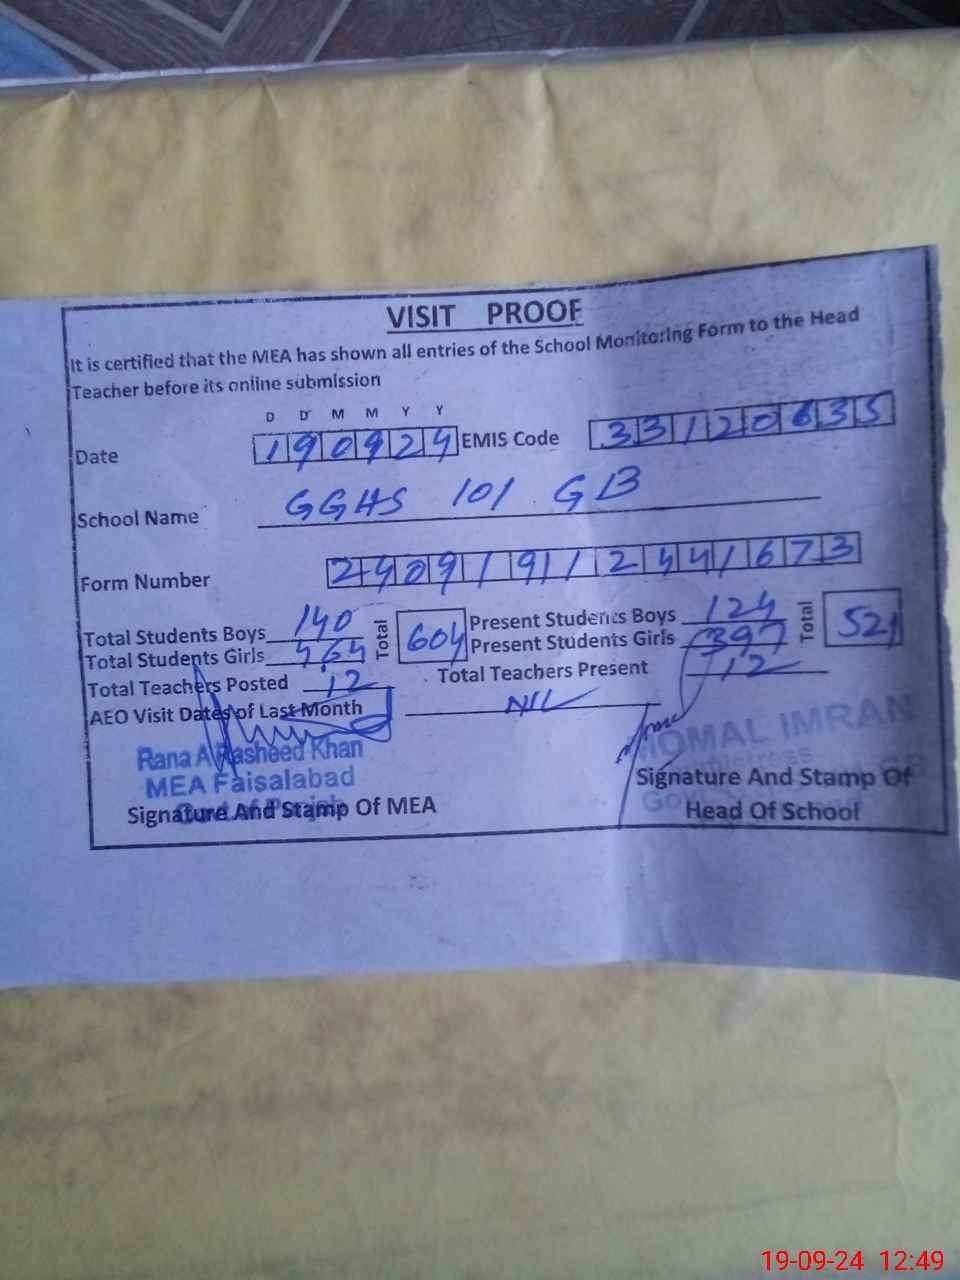 VISIT PROOF
It is certified that the MEA has shown all entries of the School Monitoring Form to the Head
Teacher before its online submission
D D M M Y Y
Date 190924 EMIS Code 33120635
School Name GGHS 101 GB
Form Number 2409191244 1673
Total Students Boys 140 Total 604 Present Students Boys 124 Total 521
Total Students Girls 464 Present Students Girls 397
Total Teachers Posted 12 Total Teachers Present 12
AEO Visit Dates of Last Month NIL
Rana A Rasheed Khan
MEA Faisalabad
Govt of Punjab
Signature And Stamp Of MEA
KOMAL IMRAN
Signature And Stamp Of
Head Of School
19-09-24 12:49